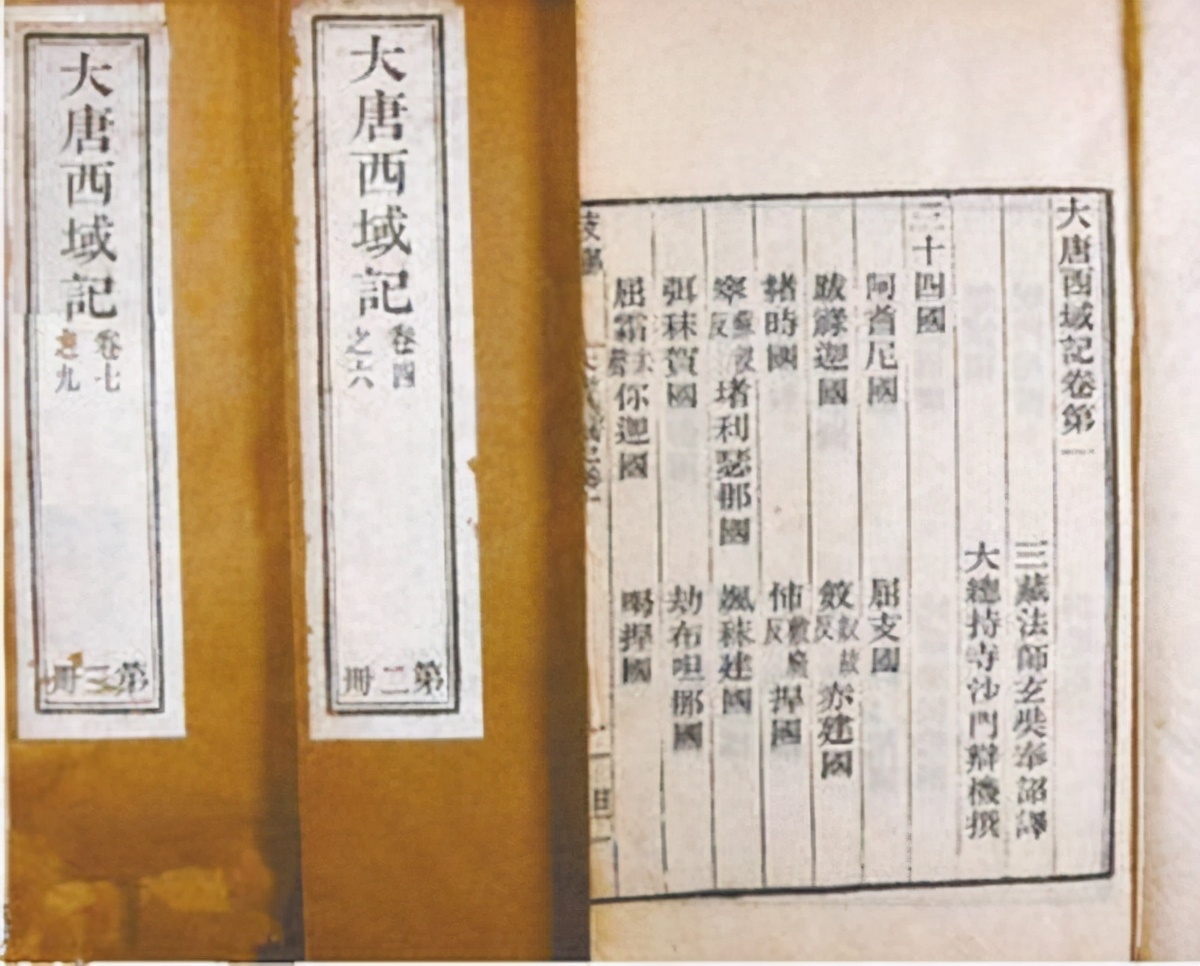 大唐西域記
卷七
之九
第三冊
大唐西域記
卷四
之六
第二冊
大唐西域記卷第一
三藏法師玄奘奉詔譯
大總持寺沙門辯機撰
三十四國
阿耆尼國 屈支國
跋祿迦國 笯故反赤建國
赭時國 捍國
窣蘇沒反堵利瑟那國 颯秣建國
弭秣賀國 劫布呾那國
屈霜去聲你迦國 喝捍國